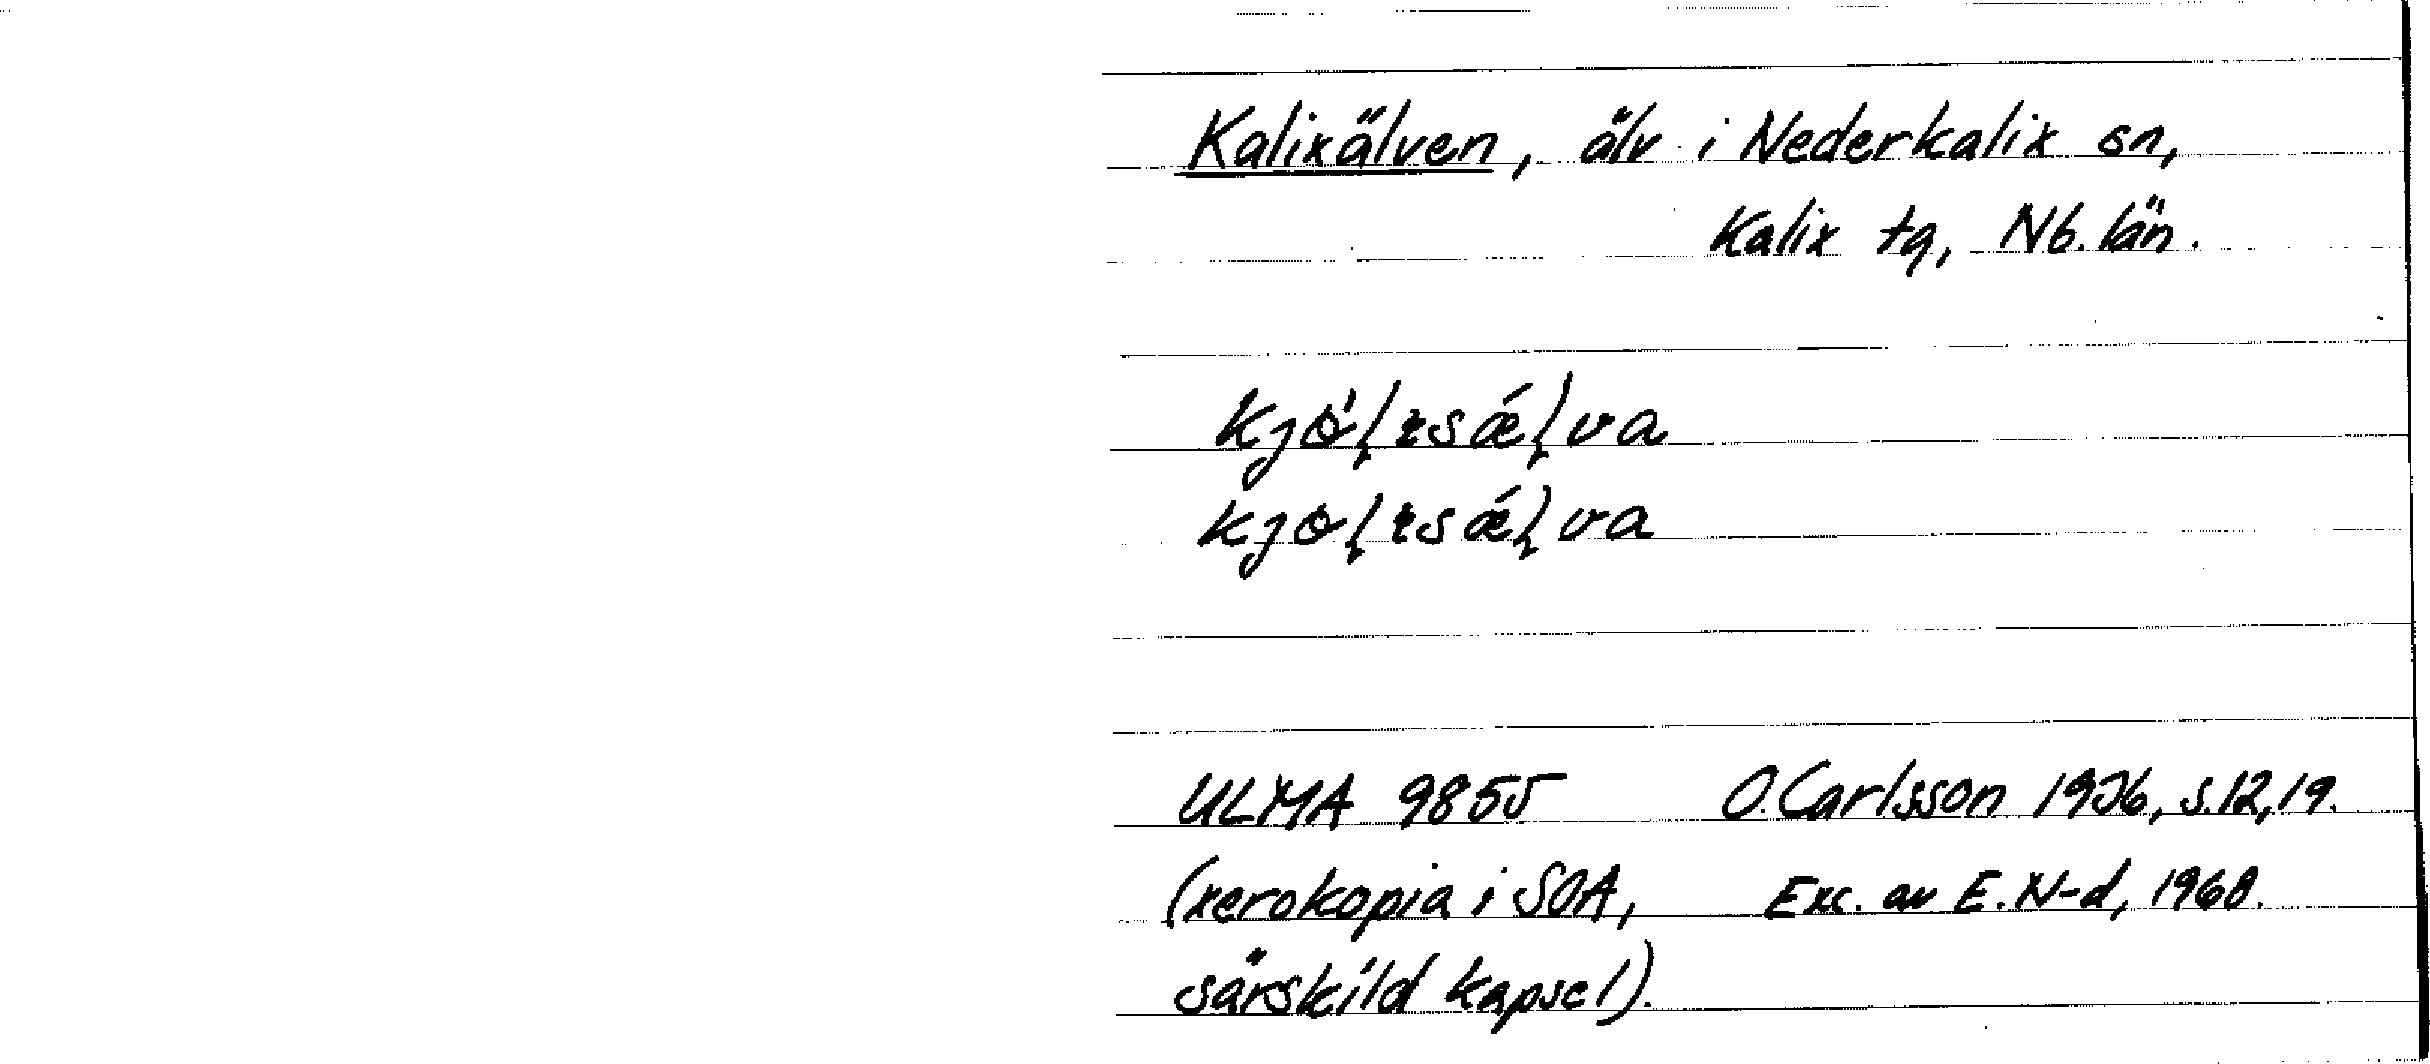 Kalixälven, älv i Nederkalix sn,
Kalix tg, Nb. län.
ULMA 9855 O. Carlsson 1936, s. 12, 19.
(xerokopia i SOA, Exc. av E. N-d, 1968.
särskild kapsel).